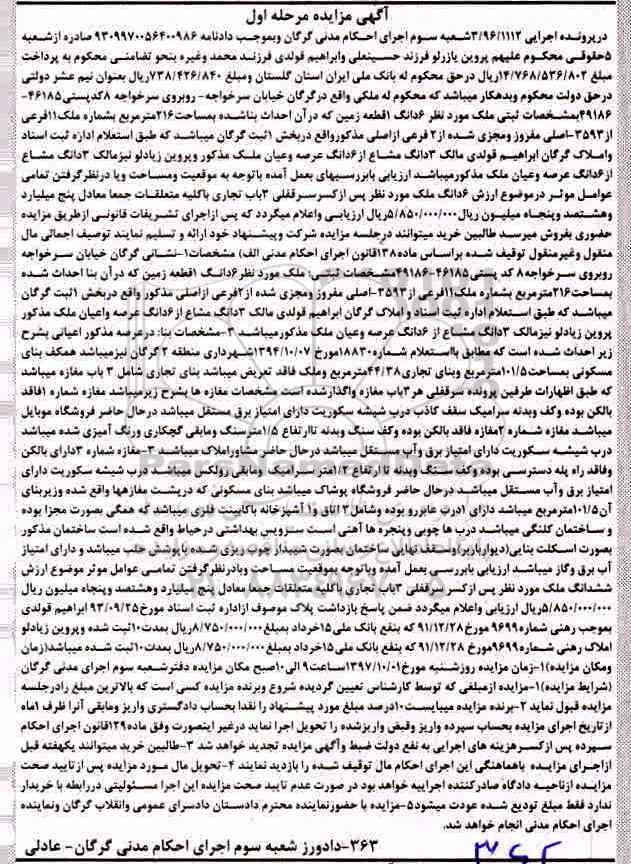 آگهی مزایده مرحله اول
درپرونده اجرایی ۳/۹۶/۱۱۱۲شعبه سوم اجرای احکام مدنی گرگان وبموجب دادنامه ۹۳۰۹۹۷۰۰۵۶۴۰۰۹۸۶ صادره ازشعبه
۵حقوقی محکوم علیهم پروین یازرلو فرزند حسینعلی وابراهیم قولدی فرزند محمد وغیره بنحو تضامنی محکوم به پرداخت
مبلغ ۱۴/۷۶۸/۵۳۶/۸۰۲ریال درحق محکوم له بانک ملی ایران استان گلستان ومبلغ ۷۳۸/۴۲۶/۸۴۰ریال بعنوان نیم عشر دولتی
درحق دولت محکوم وبدهکار میباشد که محکوم له ملکی واقع درگرگان خیابان سرخواجه- روبروی سرخواجه ۸کدپستی۴۶۱۸۵-
۴۹۱۸۶بمشخصات ثبتی ملک مورد نظر ۶دانگ ۱قطعه زمین که درآن احداث بناشده بمساحت۲۱۶مترمربع بشماره ملک۱۱فرعی
از۳۵۹۳-اصلی مفروز ومجزی شده از۲ فرعی ازاصلی مذکورواقع دربخش ۱ثبت گرگان میباشد که طبق استعلام اداره ثبت اسناد
واملاک گرگان ابراهیم قولدی مالک ۳دانگ مشاع از۶دانگ عرصه وعیان ملک مذکور وپروین زیادلو نیزمالک ۳دانگ مشاع
از۶دانگ عرصه وعیان ملک مذکورمیباشد ارزیابی بابررسیهای بعمل آمده باتوجه به موقعیت ومساحت وبا درنظرگرفتن تمامی
عوامل موثر درموضوع ارزش ۶دانگ ملک مورد نظر پس ازکسرسرقفلی ۳باب تجاری باکلیه متعلقات جمعا معادل پنج میلیارد
وهشتصد وپنجاه میلیون ریال۵/۸۵۰/۰۰۰/۰۰۰ریال ارزیابی واعلام میگردد که پس ازاجرای تشریفات قانونی ازطریق مزایده
حضوری بفروش میرسد طالبین خرید میتوانند درجلسه مزایده شرکت وپیشنهاد خود ارائه و تسلیم نمایند توصیف اجمالی مال
منقول وغیرمنقول توقیف شده براساس ماده۱۳۸قانون اجرای احکام مدنی الف) مشخصات۱-نشانی گرگان خیابان سرخواجه
روبروی سرخواجه۸ کد پستی۴۶۱۸۵-۴۹۱۸۶مشخصات ثبتی: ملک مورد نظر۶دانگ ۱قطعه زمین که درآن بنا احداث شده
بمساحت۲۱۶مترمربع بشماره ملک۱۱فرعی از۳۵۹۳-اصلی مفروز ومجزی شده از۲فرعی ازاصلی مذکور واقع دربخش ۱ثبت گرگان
میباشد که طبق استعلام اداره ثبت اسناد و املاک گرگان ابراهیم قولدی مالک ۳دانگ مشاع از۶دانگ عرصه واعیان ملک مذکور
پروین زیادلو نیزمالک ۳دانگ مشاع از ۶دانگ عرصه وعیان ملک مذکورمیباشد ۳-مشخصات بنا: درعرصه مذکور اعیانی بشرح
زیر احداث شده است که مطابق بااستعلام شماره۱۸۸۳۰مورخ ۱۳۹۴/۱۰/۰۷شهرداری منطقه ۲گرگان نیزمیباشد همکف بنای
مسکونی بمساحت۱۰۱/۵مترمربع وبنای تجاری۴۴/۳۸مترمربع وملک فاقد تعریض میباشد بنای تجاری شامل ۳ باب مغازه میباشد
که طبق اظهارات طرفین پرونده سرقفلی هر۳باب مغازه واگذارشده است مشخصات مغازه ها بشرح زیرمیباشد مغازه شماره ۱فاقد
بالکن بوده وکف وبدنه سرامیک سقف کاذب درب شیشه سکوریت دارای امتیاز برق مستقل میباشد درحال حاضر فروشگاه موبایل
میباشد مغازه شماره ۲مغازه فاقد بالکن بوده وکف سنگ وبدنه تاارتفاع ۱/۵مترسنگ ومابقی گچکاری ورنگ آمیزی شده میباشد
درب شیشه سکوریت دارای امتیاز برق وآب مستقل میباشد درحال حاضر مشاوراملاک میباشد ۲-مغازه شماره ۳دارای بالکن
وفاقد راه پله دسترسی بوده وکف سنگ وبدنه تا ارتفاع ۱/۲متر سرامیک ومابقی رولکس میباشد درب شیشه سکوریت دارای
امتیاز برق وآب مستقل میباشد درحال حاضر فروشگاه پوشاک میباشد بنای مسکونی که درپشت مغازهها واقع شده وزیربنای
آن۱۰۱/۵مترمربع میباشد دارای ۱درب عابررو بوده وشامل۲ اتاق و۱ آشپزخانه باکابینت فلزی میباشد که همگی بصورت مجزا بوده
و ساختمان کلنگی میباشد درب ها چوبی وپنجره ها آهنی است سرویس بهداشتی درحیاط واقع شده است ساختمان مذکور
بصورت اسکلت بنایی(دیواربارب)وسقف نهایی ساختمان بصورت شیبدار چوب ریزی شده باپوشش حلب میباشد و دارای امتیاز
آب برق وگاز میباشد ارزیابی بابررسی بعمل آمده وباتوجه بموقعیت مساحت وبادرنظرگرفتن تمامی عوامل موثر موضوع ارزش
ششدانگ ملک مورد نظر پس ازکسرسرقفلی ۳باب تجاری باکلیه متعلقات جمعا معادل پنج میلیارد وهشتصد وپنجاه میلیون ریال
۵/۸۵۰/۰۰۰/۰۰۰ریال ارزیابی واعلام میگردد ضمن پاسخ بازداشت پلاک موصوف ازاداره ثبت اسناد مورخ۹۳/۰۹/۲۵ ابراهیم قولدی
بموجب رهنی شماره۹۶۹۹ مورخ۹۱/۱۲/۲۸ که بنفع بانک ملی ۱۵خرداد بمبلغ۸/۷۵۰/۰۰۰/۰۰۰ریال بمدت۱۰ثبت شده وپروین زیادلو
املاک رهنی شماره۹۶۹۹مورخ ۹۱/۱۲/۲۸ که بنفع بانک ملی۱۵خرداد بمبلغ۸/۷۵۰/۰۰۰/۰۰۰ریال بمدت۱۰ثبت شده میباشد(زمان
ومکان مزایده)۱-زمان مزایده روزشنبه مورخ۱۳۹۷/۱۰/۰۱ساعت۹ الی۱۰صبح مکان مزایده دفترشعبه سوم اجرای مدنی گرگان
(شرایط مزایده)۱-مزایده ازمبلغی که توسط کارشناس تعیین گردیده شروع وبرنده مزایده کسی است که بالاترین مبلغ رادرجلسه
مزایده قبول نماید ۲-برنده مزایده میبایست۱۰درصد مبلغ مورد پیشنهاد را نقدا بحساب دادگستری واریز ومابقی آنرا ظرف ۱ماه
ازتاریخ اجرای مزایده بحساب سپرده واریز وقبض واریزشده را تحویل اجرا نماید درغیر اینصورت وفق ماده۱۲۹قانون اجرای احکام
سپرده پس ازکسرهزینه های اجرایی به نفع دولت ضبط وآگهی مزایده تجدید خواهد شد ۳-طالبین خرید میتوانند یکهفته قبل
ازاجرای مزایده باهماهنگی این اجرای احکام مال توقیف شده را بازدید نمایند ۴-تحویل مال مورد مزایده پس ازتایید صحت
مزایده ازناحیه دادگاه صادرکننده اجراییه خواهد بود در صورت عدم تایید صحت مزایده این اجرا مسئولیتی دررابطه با خریدار
ندارد فقط مبلغ تودیع شده عودت میشود۵-مزایده با حضورنماینده محترم دادستان دادسرای عمومی وانقلاب گرگان ونماینده
اجرای احکام مدنی انجام خواهد شد.
۳۶۳-دادورز شعبه سوم اجرای احکام مدنی گرگان- عادلی